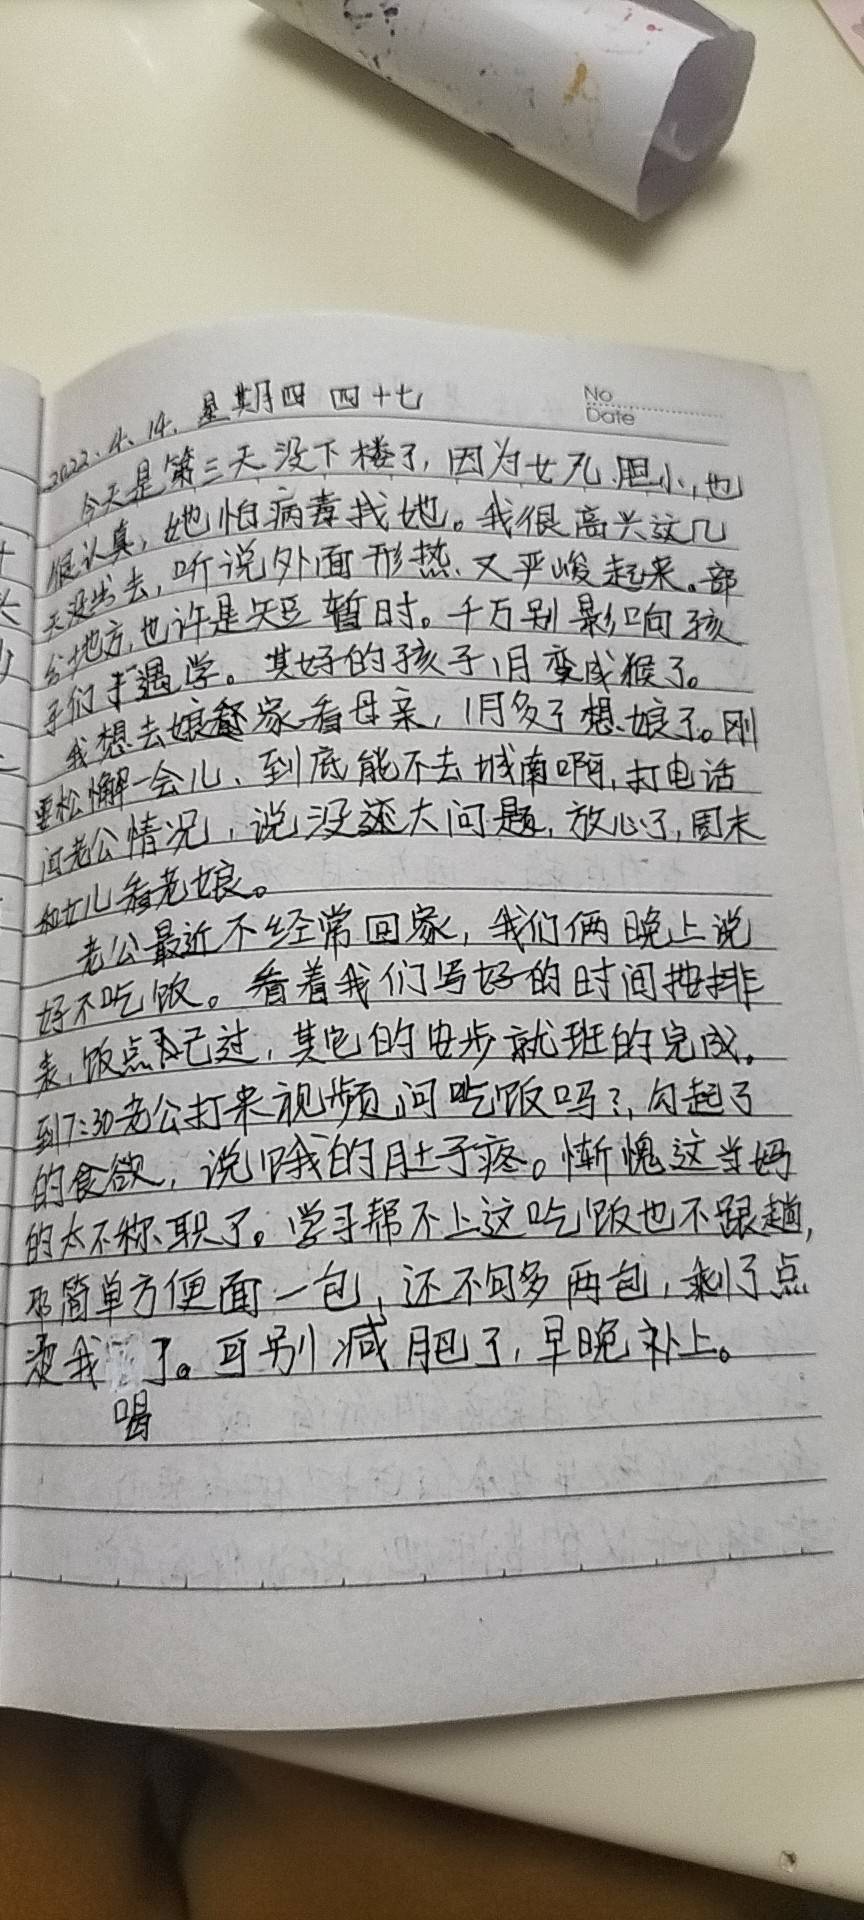 No
Date
2022.4.14.星期四 四十七
今天是第三天没下楼了,因为女儿胆小,也
很认真,她怕病毒找她。我很高兴这几
天没出去,听说外面形热又严峻起来。部
分地方,也许是短暂时。千万别影响孩
子们开学。其好的孩子1月变成猴了。
我想去娘家看母亲,1月多了想娘了。刚
要松懈一会儿、到底能不去城南啊,打电话
问老公情况,说没还大问题,放心了,周末
和女儿看老娘。
老公最近不经常回家,我们俩晚上说
好不吃饭。看着我们写好的时间按排
表,饭点已过,其它的安步就班的完成。
到7:30老公打来视频问吃饭吗?,勾起了
的食欲,说哦我的肚子疼。惭愧这当妈
的太不称职了。学习帮不上这吃饭也不跟趟,
那简单方便面一包,还不何多两包,剩了点
烫我喝了。可别减肥了,早晚补上。